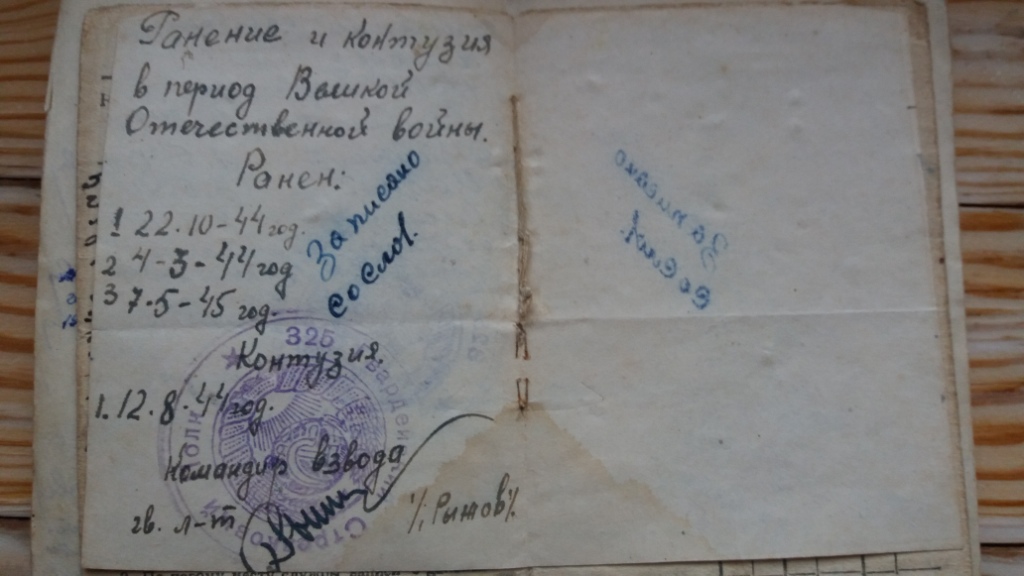 Ранение и контузия
в период Великой
Отечественной войны.
Ранен:
1 22.10-44 год.
2 4-3-44 год
3 7.5-45 год.
Записано
со слов.
Контузия.
1. 12.8.44 год.
Командир взвода
гв. л-т
/Рыжов/
325